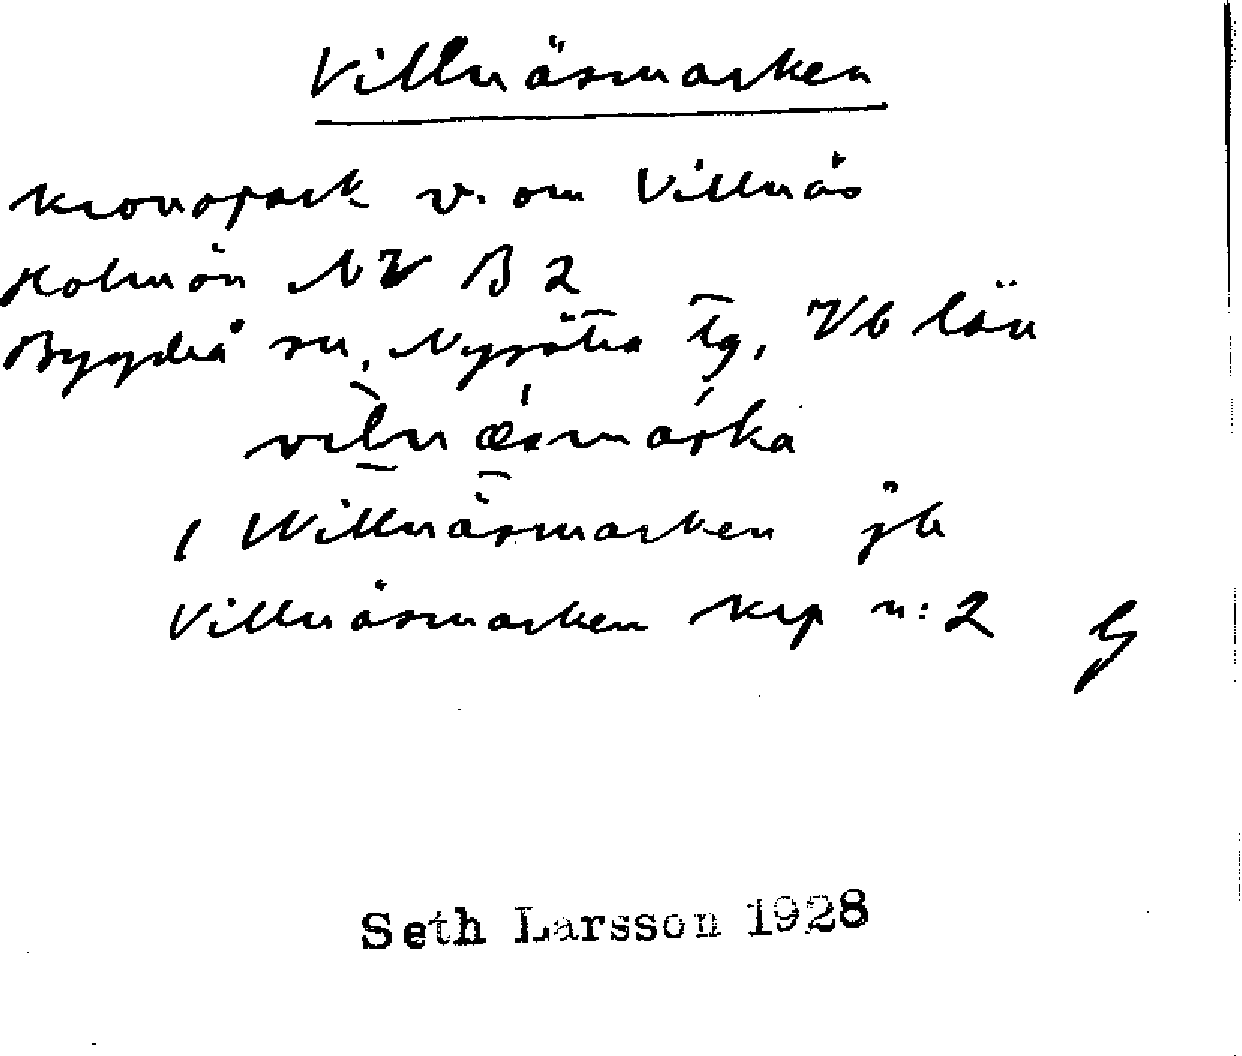 Villnäsmarken
kronopark v. om Villnäs
Holmön NV B 2
Bygdeå sn, Nysätra tg, Vb län
vilnæsmarka
1 Willnäsmarken jb
Villnäsmarken krp n:2 G
Seth Larsson 1928